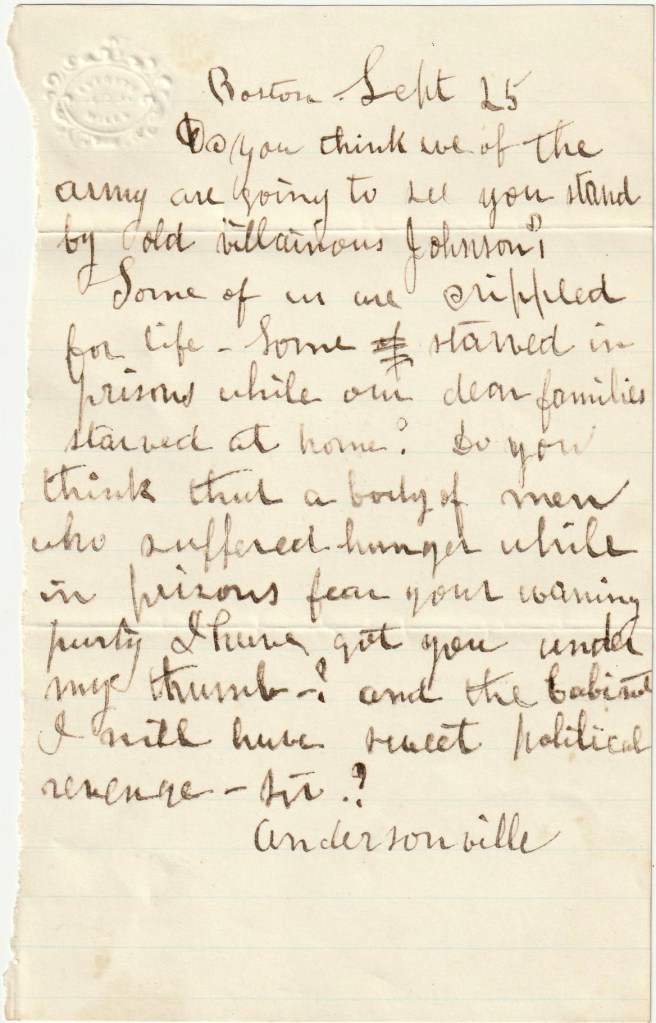 Boston Sept 25
Do you think we of the
army are going to see you stand
by old villainous Johnson?
Some of us are crippled
for life – Some of starved in
prisons while our dear families
starved at home? Do you
think that a body of men
who suffered hunger while
in prisons fear your waning
party I have got you under
my thumb –? and the Cabinet
I will have sweet political
revenge – sir.?
Andersonville